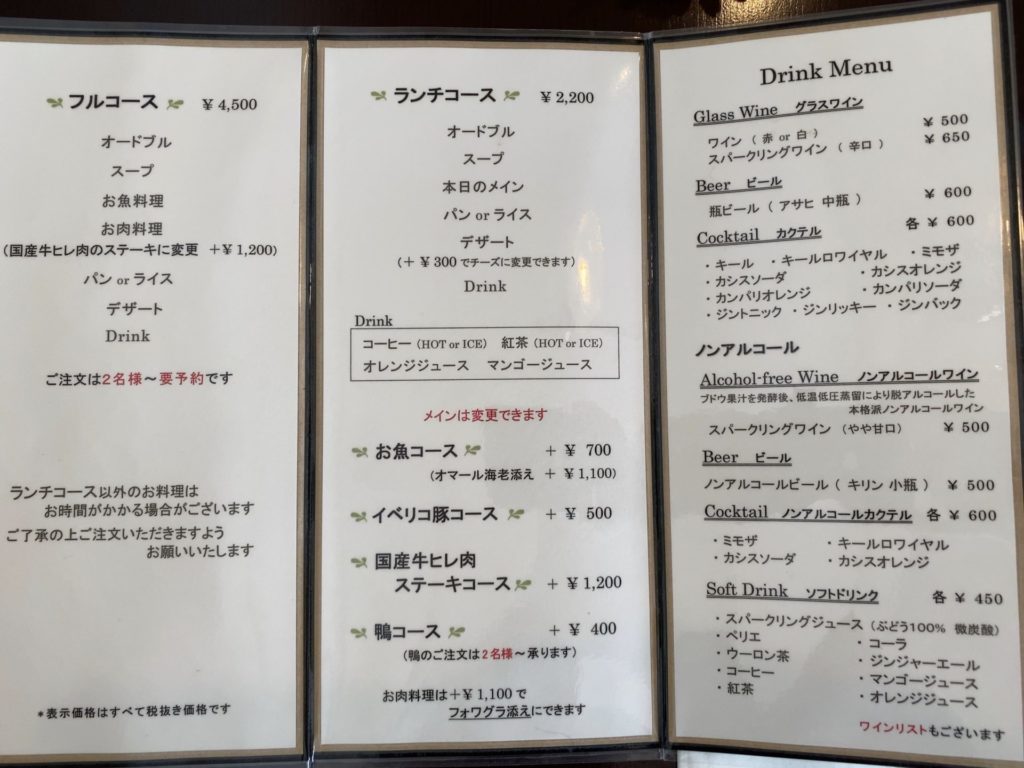 フルコース ￥4,500
オードブル
スープ
お魚料理
お肉料理
(国産牛ヒレ肉のステーキに変更 +￥1,200)
パン or ライス
デザート
Drink
ご注文は2名様～要予約です
ランチコース以外のお料理は
お時間がかかる場合がございます
ご了承の上ご注文いただきますよう
お願いいたします
*表示価格はすべて税抜き価格です
ランチコース ￥2,200
オードブル
スープ
本日のメイン
パン or ライス
デザート
(+￥300でチーズに変更できます)
Drink
Drink
コーヒー (HOT or ICE) 紅茶 (HOT or ICE)
オレンジジュース マンゴージュース
メインは変更できます
お魚コース +￥ 700
(オマール海老添え +￥1,100)
イベリコ豚コース +￥ 500
国産牛ヒレ肉
ステーキコース +￥1,200
鴨コース +￥ 400
(鴨のご注文は2名様～承ります)
お肉料理は+￥1,100で
フォワグラ添えにできます
Drink Menu
Glass Wine グラスワイン
ワイン ( 赤 or 白 ) ￥ 500
スパークリングワイン ( 辛口 ) ￥ 650
Beer ビール
瓶ビール ( アサヒ 中瓶 ) ￥ 600
Cocktail カクテル 各 ￥ 600
・キール ・キールロワイヤル ・ミモザ
・カシスソーダ ・カシスオレンジ
・カンパリオレンジ ・カンパリソーダ
・ジントニック ・ジンリッキー ・ジンバック
ノンアルコール
Alcohol-free Wine ノンアルコールワイン
ブドウ果汁を発酵後、低温低圧蒸留により脱アルコールした
本格派ノンアルコールワイン
スパークリングワイン (やや甘口) ￥ 500
Beer ビール
ノンアルコールビール ( キリン 小瓶 ) ￥ 500
Cocktail ノンアルコールカクテル 各 ￥ 600
・ミモザ ・キールロワイヤル
・カシスソーダ ・カシスオレンジ
Soft Drink ソフトドリンク 各 ￥ 450
・スパークリングジュース (ぶどう100% 微炭酸)
・ペリエ ・コーラ
・ウーロン茶 ・ジンジャーエール
・コーヒー ・マンゴージュース
・紅茶 ・オレンジジュース
ワインリストもございます